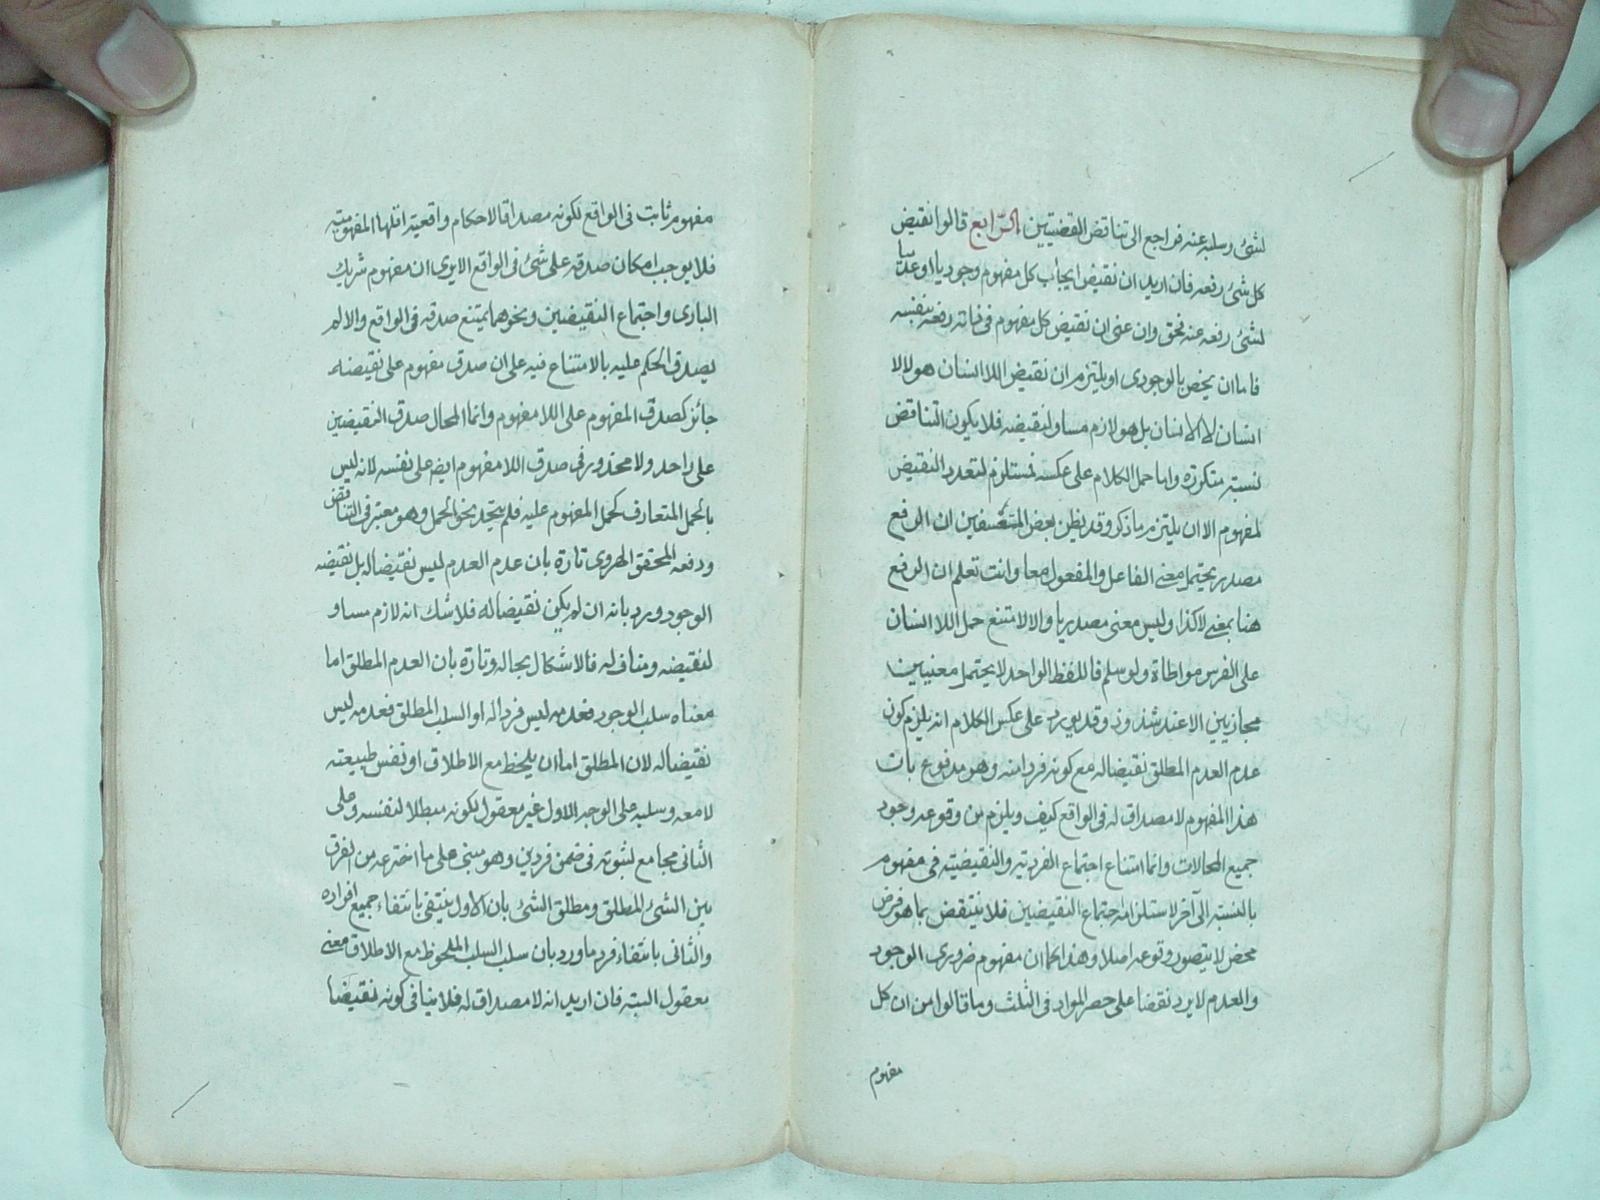 لشئ وسلبه عنه فراجع الى تناقض القضيتين الرابع قالوا نقيض
كل شئ رفعه فان اريد ان نقيض ايجاب كل مفهوم وجوديا او عدميا
لشئ رفعه عنه فحق وان عنى ان نقيض كل مفهوم فى ذاته رفعه بنفسه
فاما ان يخص بالوجودى او يلتزم ان نقيض اللا انسان هو لا لا
انسان لا الانسان بل هو لازم مساو لنقيضه فلا يكون التناقض
نسبته متكررة واما حمل الكلام على عكسه فمستلزم لتعدد النقيض
لمفهوم الا ان يلتزم ما ذكر وقد يظن بعض المتعسفين ان الرفع
مصدر يحتمل معنى الفاعل والمفعول معا وانت تعلم ان الرفع
هنا بمعنى لا كذا وليس معنى مصدريا والا لامتنع حمل اللا انسان
على الفرس مواطاة ولو سلم فاللفظ الواحد لا يحتمل معنيين
مجازيين الا عند شذوذ وقد يورد على عكس الكلام انه يلزم كون
عدم العدم المطلق نقيضا له مع كونه فردا منه وهو مدفوع بان
هذا المفهوم لا مصداق له فى الواقع كيف ويلزم من وقوعه وجود
جميع المحالات وانما امتناع اجتماع الفردية والنقيضية فى مفهوم
بالنسبة الى آخر لاستلزامه اجتماع النقيضين فلا ينتقض بما هو فرض
محض لا يتصور وقوعه اصلا وهذا كما ان مفهوم ضرورى الوجود
والعدم لا يرد نقضا على حصر المواد فى الثلث وما قالوا من ان كل
مفهوم
مفهوم ثابت فى الواقع لكونه مصداقا لاحكام واقعية اقلها المفهومية
فلا يوجب امكان صدقه على شئ فى الواقع الا يرى ان مفهوم شريك
البارى واجتماع النقيضين ونحوهما يمتنع صدقه فى الواقع والا لم
يصدق الحكم عليه بالامتناع فيه على ان صدق مفهوم على نقيضه
جائز كصدق المفهوم على اللا مفهوم وانما المحال صدق النقيضين
على واحد ولا محذور فى صدق اللا مفهوم ايضا على نفسه لانه ليس
بالحمل المتعارف كحمل المفهوم عليه فلم يتحد نحو الحمل وهو معتبر فى التناقض
ودفعه المحقق الهروى تارة بان عدم العدم ليس نقيضا له بل نقيضه
الوجود ورد بانه ان لم يكن نقيضا له فلا شك انه لازم مساو
لنقيضه ومناف له فالاشكال بحاله وتارة بان العدم المطلق اما
معناه سلب الوجود فعدمه ليس فردا له او السلب المطلق فعدمه ليس
نقيضا له لان المطلق اما ان يلحظ مع الاطلاق او نفس طبيعته
لا معه وسلبه على الوجه الاول غير معقول لكونه مبطلا لنفسه وعلى
الثانى مجامع لثبوته فى ضمن فردين وهو مبنى على ما اخترعه من الفرق
بين الشئ المطلق ومطلق الشئ بان الاول ينتفى بانتفاء جميع افراده
والثانى بانتفاء فرد ما ورد بان سلب السلب الملحوظ مع الاطلاق معنى
معقول البتة فان اريد انه لا مصداق له فلا ينافى كونه نقيضا